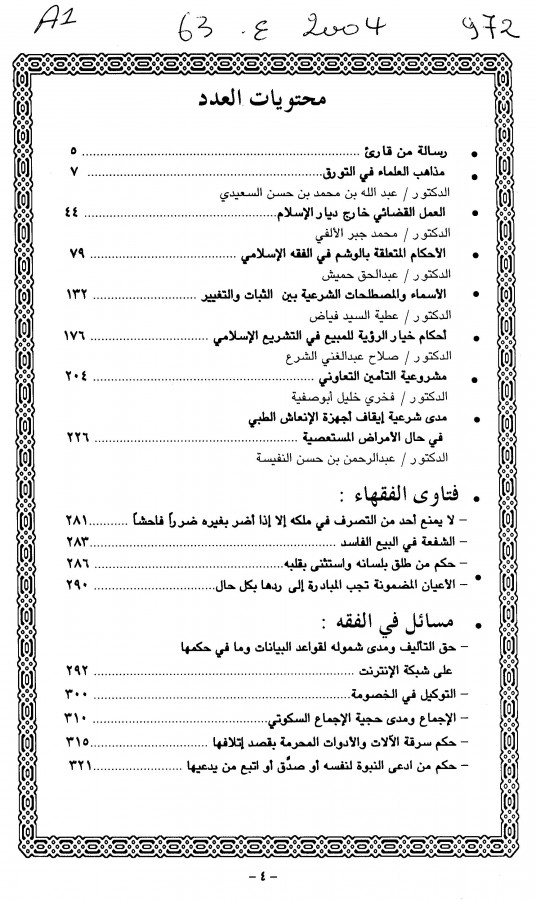 A1 63 .ع 2004 972
محتويات العدد
• رسالة من قارئ ........ ٥
• مذاهب العلماء في التورق ........ ٧
الدكتور / عبد الله بن محمد بن حسن السعيدي
• العمل القضائي خارج ديار الإسلام ........ ٤٤
الدكتور / محمد جبر الألفي
• الأحكام المتعلقة بالوشم في الفقه الإسلامي ........ ٧٩
الدكتور / عبدالحق حميش
• الأسماء والمصطلحات الشرعية بين الثبات والتغيير ........ ١٣٢
الدكتور / عطية السيد فياض
• أحكام خيار الرؤية للمبيع في التشريع الإسلامي ........ ١٧٦
الدكتور / صلاح عبدالغني الشرع
• مشروعية التأمين التعاوني ........ ٢٠٤
الدكتور / فخري خليل أبوصفية
• مدى شرعية إيقاف أجهزة الإنعاش الطبي
في حال الأمراض المستعصية ........ ٢٢٦
الدكتور / عبدالرحمن بن حسن النفيسة
• فتاوى الفقهاء :
– لا يمنع أحد من التصرف في ملكه إلا إذا أضر بغيره ضرراً فاحشاً ........ ٢٨١
– الشفعة في البيع الفاسد ........ ٢٨٣
– حكم من طلق بلسانه واستثنى بقلبه ........ ٢٨٦
• – الأعيان المضمونة تجب المبادرة إلى ردها بكل حال ........ ٢٩٠
• مسائل في الفقه :
– حق التأليف ومدى شموله لقواعد البيانات وما في حكمها
على شبكة الإنترنت ........ ٢٩٢
– التوكيل في الخصومة ........ ٣٠٠
– الإجماع ومدى حجية الإجماع السكوتي ........ ٣١٠
– حكم سرقة الآلات والأدوات المحرمة بقصد إتلافها ........ ٣١٥
– حكم من ادعى النبوة لنفسه أو صدَّق أو اتبع من يدعيها ........ ٣٢١
– ٤ –